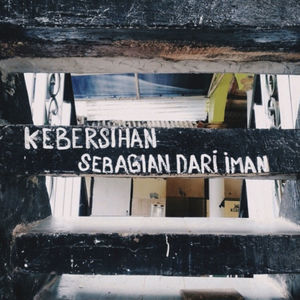 KEBERSIHAN
SEBAGIAN DARI IMAN